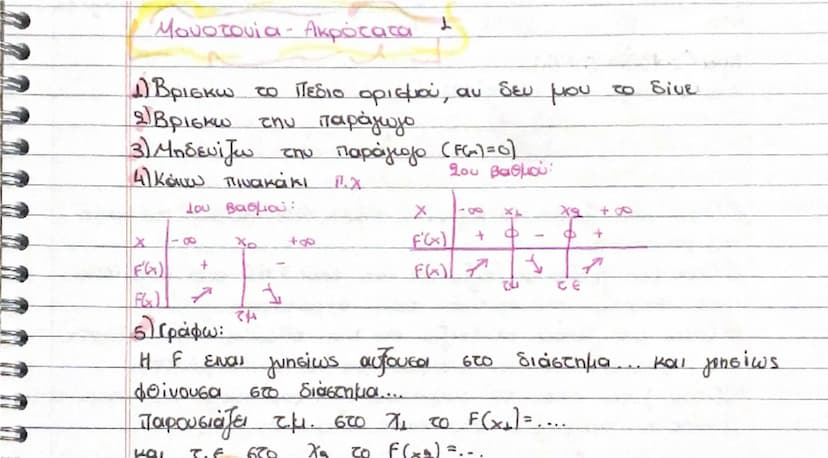 Μονοτονία - Ακρότατα 1
1) Βρισκω το Πεδιο ορισμού, αν δεν μου το δίνε
2) Βρισκω την παράγωγο
3) Μηδενίζω την παράγωγο (F(x)=0)
4) Κάνω πινακάκι π.χ
1ου βαθμού:
x -∞ x₀ +∞
F'(x) + -
F(x) ↗ ↘
τμ
2ου βαθμού:
x -∞ x₁ x₂ +∞
F'(x) + 0 - 0 +
F(x) ↗ ↘ ↗
τμ τε
5) Γράφω:
Η F ειναι γνησίως αυξουσα στο διάστημα... και γνησίως
φθίνουσα στο διάστημα...
Παρουσιάζει τ.μ. στο x₁ το F(x₁)=....
και τ.ε στο x₂ το F(x₂)=...